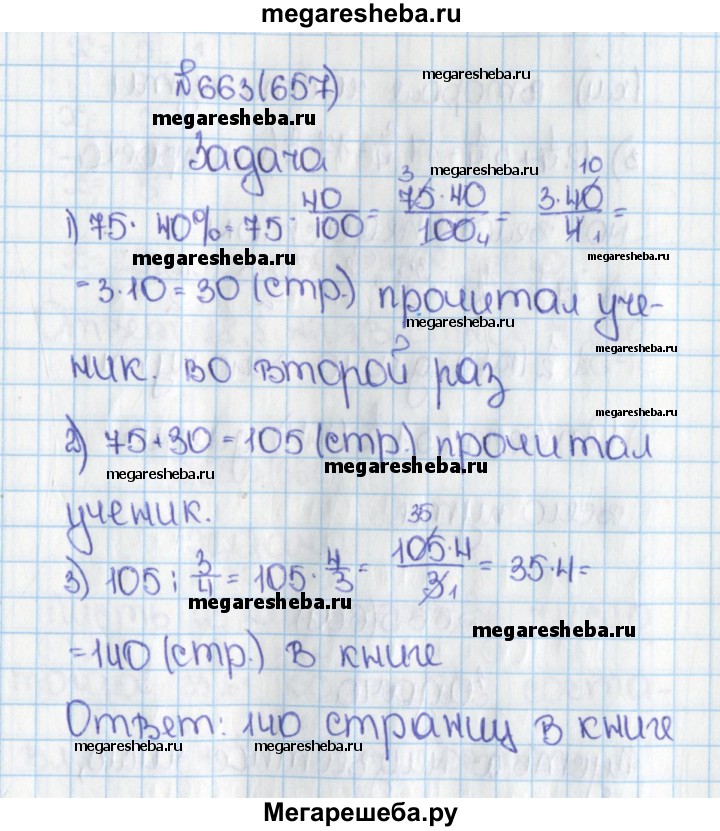 megaresheba.ru
№663(657)
megaresheba.ru
megaresheba.ru
Задача
megaresheba.ru
1) 75 · 40% = 75 · 40/100 = 75·40/100 = 3·40/4 =
3 4 10 1
megaresheba.ru
= 3·10 = 30 (стр.) прочитал уче-
megaresheba.ru
ник. во второй раз
megaresheba.ru
2) 75+30 = 105 (стр.) прочитал
megaresheba.ru
megaresheba.ru
ученик.
3) 105 : 3/4 = 105 · 4/3 = 105·4/3 = 35·4 =
35 1
megaresheba.ru
megaresheba.ru
=140 (стр.) в книге
Ответ: 140 страниц в книге
megaresheba.ru
megaresheba.ru
megaresheba.ru
Мегарешеба.ру